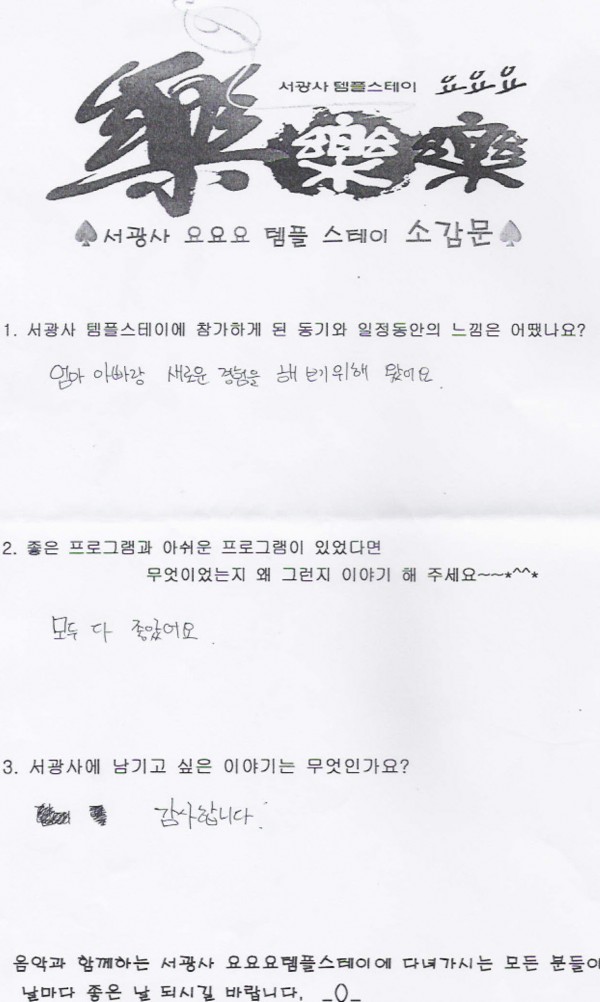 서광사 템플스테이 요요요
樂 樂 樂
서광사 요요요 템플 스테이 소감문
1. 서광사 템플스테이에 참가하게 된 동기와 일정동안의 느낌은 어땠나요?
엄마 아빠랑 새로운 경험을 해 보기위해 왔어요.
2. 좋은 프로그램과 아쉬운 프로그램이 있었다면
무엇이었는지 왜 그런지 이야기 해 주세요~~*^^*
모두 다 좋았어요.
3. 서광사에 남기고 싶은 이야기는 무엇인가요?
감사합니다.
음악과 함께하는 서광사 요요요템플스테이에 다녀가시는 모든 분들이
날마다 좋은 날 되시길 바랍니다. _()_